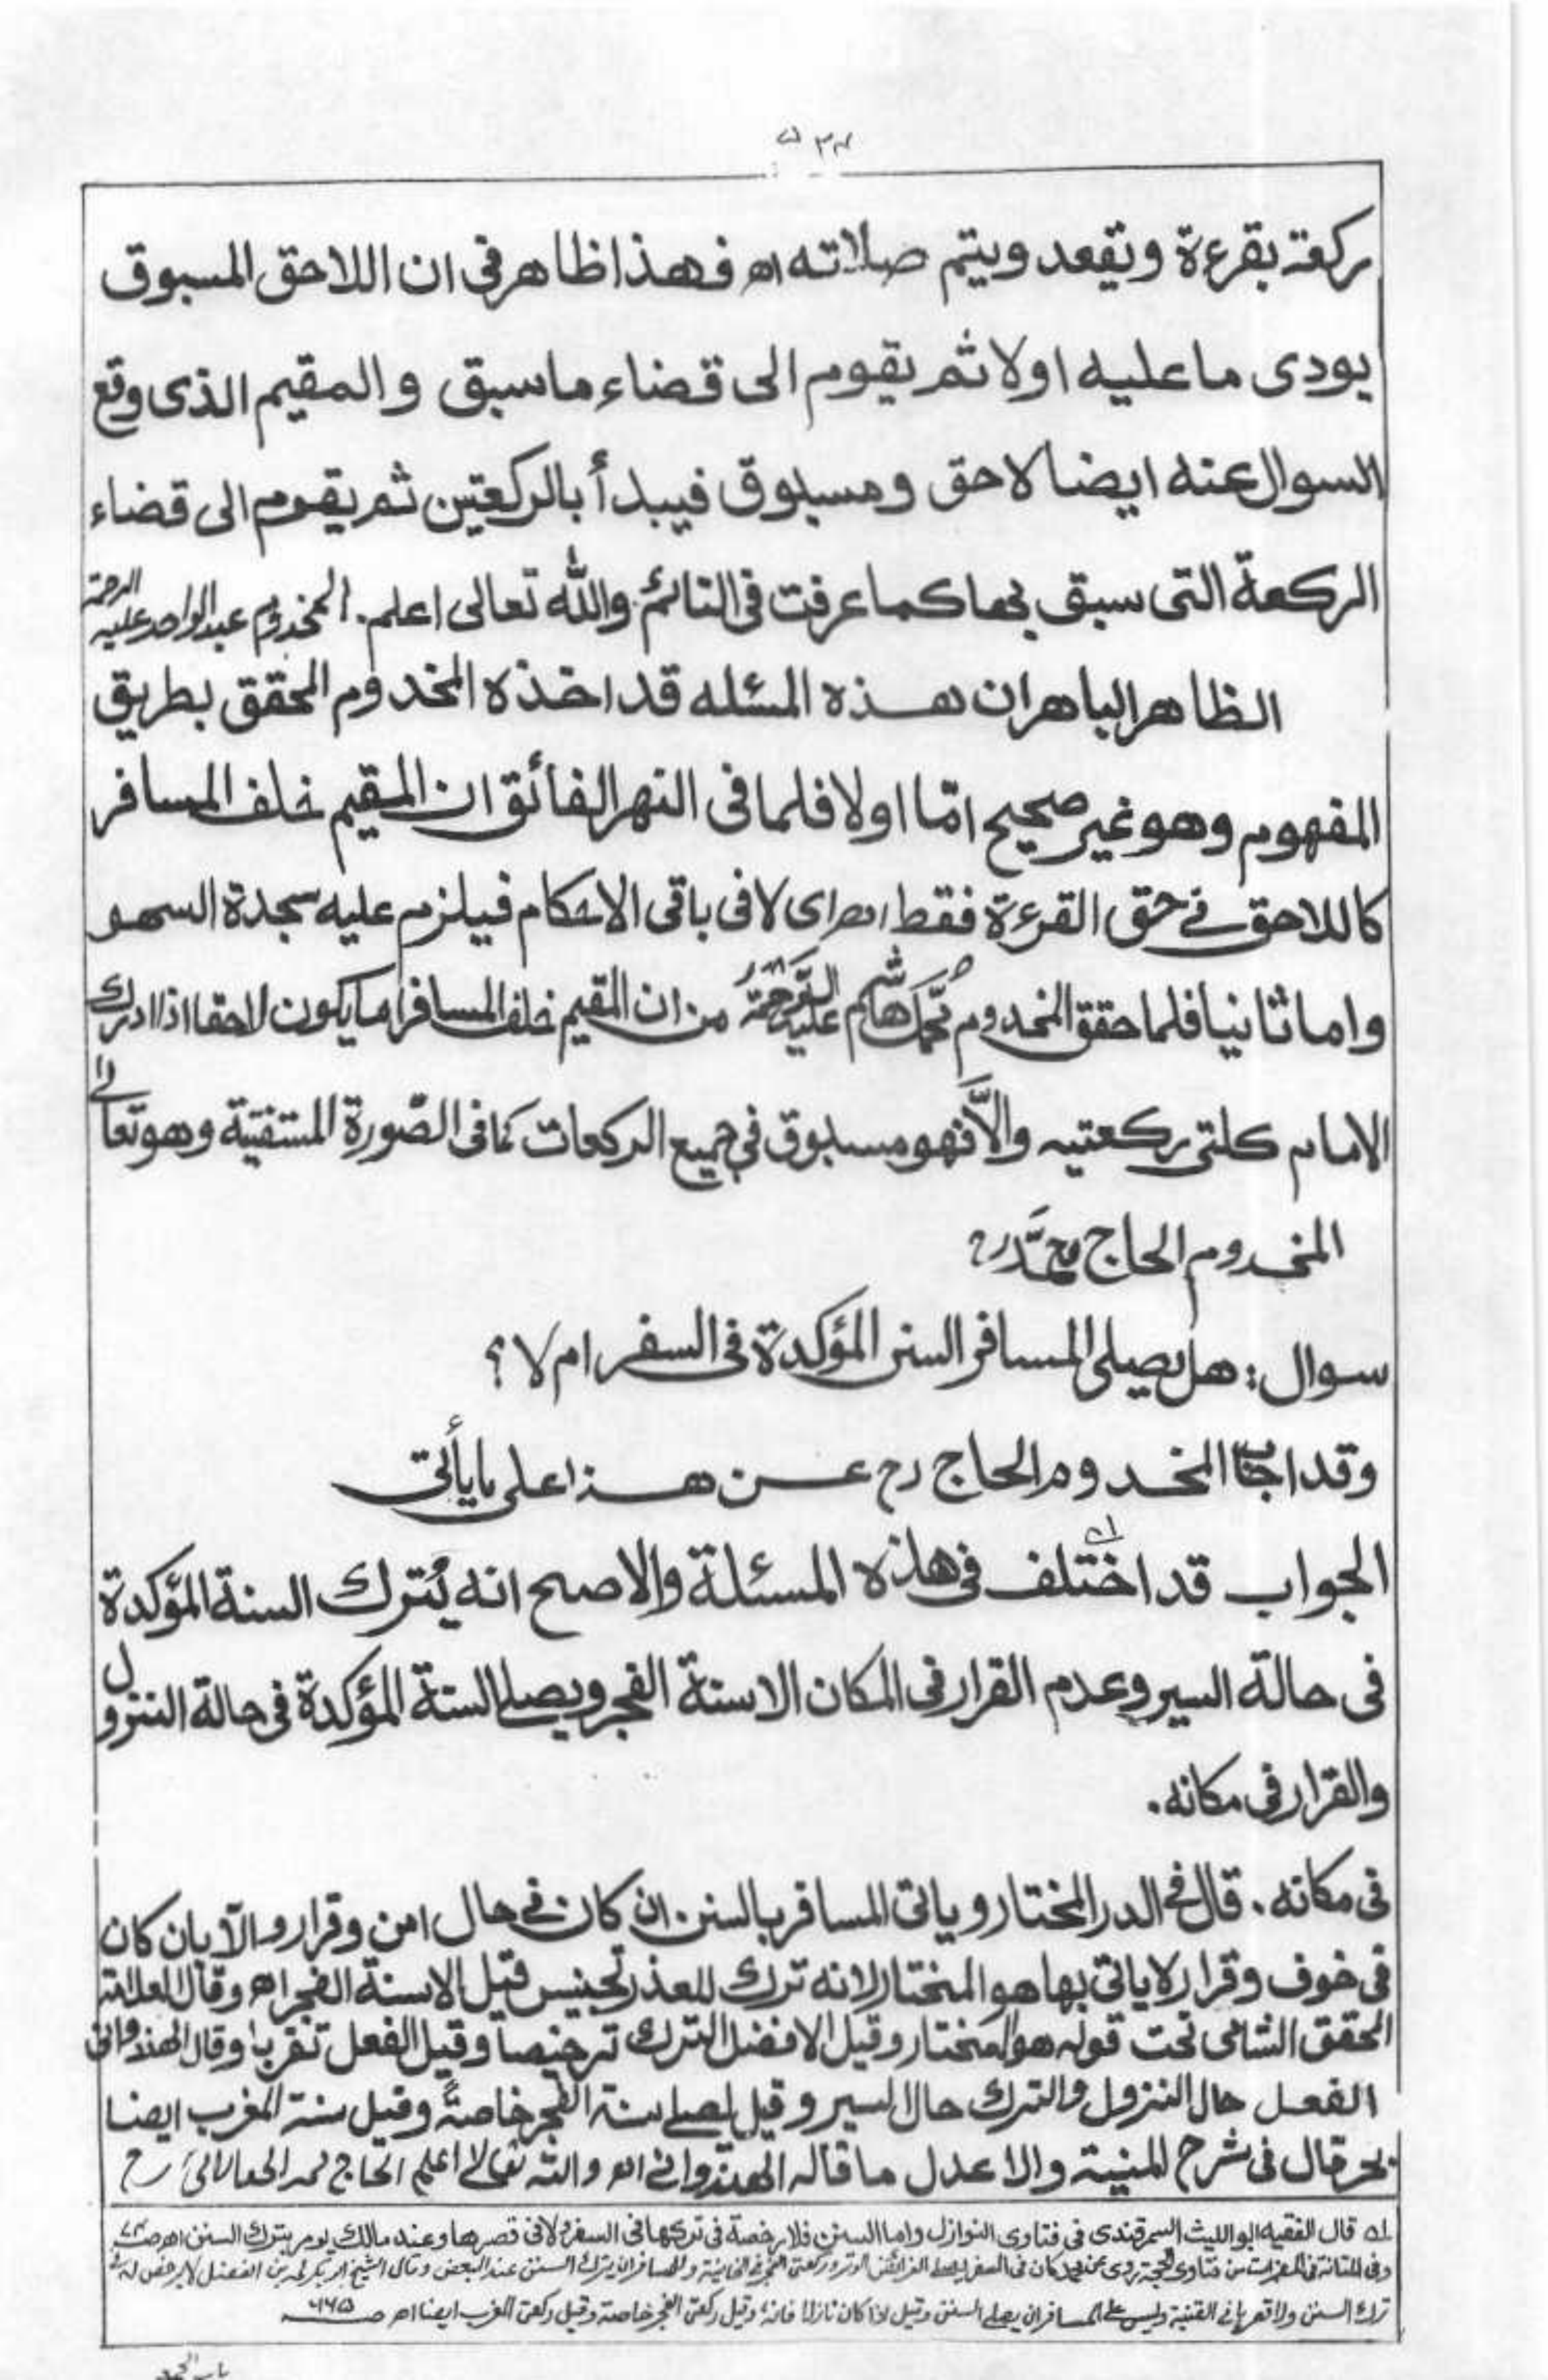 ركعة بقرءة وتقعد ويتم صلاته اھ فهذا ظاهر فی ان اللاحق المسبوق
يودی ما عليه اولا ثم يقوم الی قضاء ما سبق والمقيم الذی وقع
السوال عنه ايضا لاحق ومسبوق فيبدأ بالركعتين ثم يقوم الی قضاء
الركعة التی سبق بها كما عرفت فی النائم والله تعالی اعلم. المخدوم عبدالواحد عليه الرحمة
الظاهر الباهر ان هذه المسئله قد اخذه المخدوم المحقق بطريق
المفهوم وهو غير صحيح امّا اولا فلما فی النهر الفائق ان المقيم خلف المسافر
كاللاحق فے حق القرءة فقط اھ ای لا فی باقی الاحكام فيلزم عليه سجدة السهو
واما ثانيا فلما حقق المخدوم محمد هاشم عليه الرحمة من ان المقيم خلف المسافر انما يكون لاحقا اذا ادرك
الامام كلتی ركعتيه والّا فهو مسبوق فی جميع الركعات كما فی الصّورة المستفتية وهو تعالٰے
المخدوم الحاج محمّد رح
سوال: هل يصلی المسافر السنن المؤكدة فی السفر ام لا؟
وقد اجاب المخدوم الحاج رح عن هذا علی ما يأتی
الجواب قد اختلف فی هذه المسئلة والاصح انه يُترك السنة المؤكدة
فی حالة السير وعدم القرار فی المكان الا سنة الفجر ويصلے السنة المؤكدة فی حالة النزول
والقرار فی مكانه.
فی مكانه. قال فے الدر المختار وياتی المسافر بالسنن ان كان فے حال امن وقرار والّا بان كان
فی خوف وقرار لا ياتی بها هو المختار لانه ترك للعذر تجنيس قيل الا سنة الفجر اھ وقال العلامة
المحقق الشامی تحت قوله هو المختار وقيل الافضل الترك ترخيصاً وقيل الفعل تقربا وقال الهندوانی
الفعل حال النزول والترك حال السير وقيل يصلے سنة الفجر خاصةً وقيل سنة المغرب ايضا
بحر قال فی شرح المنية والاعدل ما قاله الهندوانے اھ والله تعالٰے اعلم الحاج رح
ا قال الفقيه ابو الليث السمرقندی فی فتاوی النوازل واما السنن فلا رخصة فی تركها فی السفر ولا فی قصرها وعند مالك يومر بترك السنن اھ
وفی من فتاوی الحجة روی عن محمد كان فی السفر يصلے الفرائض الوتر وركعتی الفجر فے وللمسافر ان يترك السنن عند البعض وقال الشيخ بن الفضل لا يرخص له فے
ترك السنن فے القنية وليس علے المسافر ان يصلے السنن وقيل اذا كان نازلا وقيل ركعتی الفجر خاصة وقيل ركعتی المغرب ايضا اھ